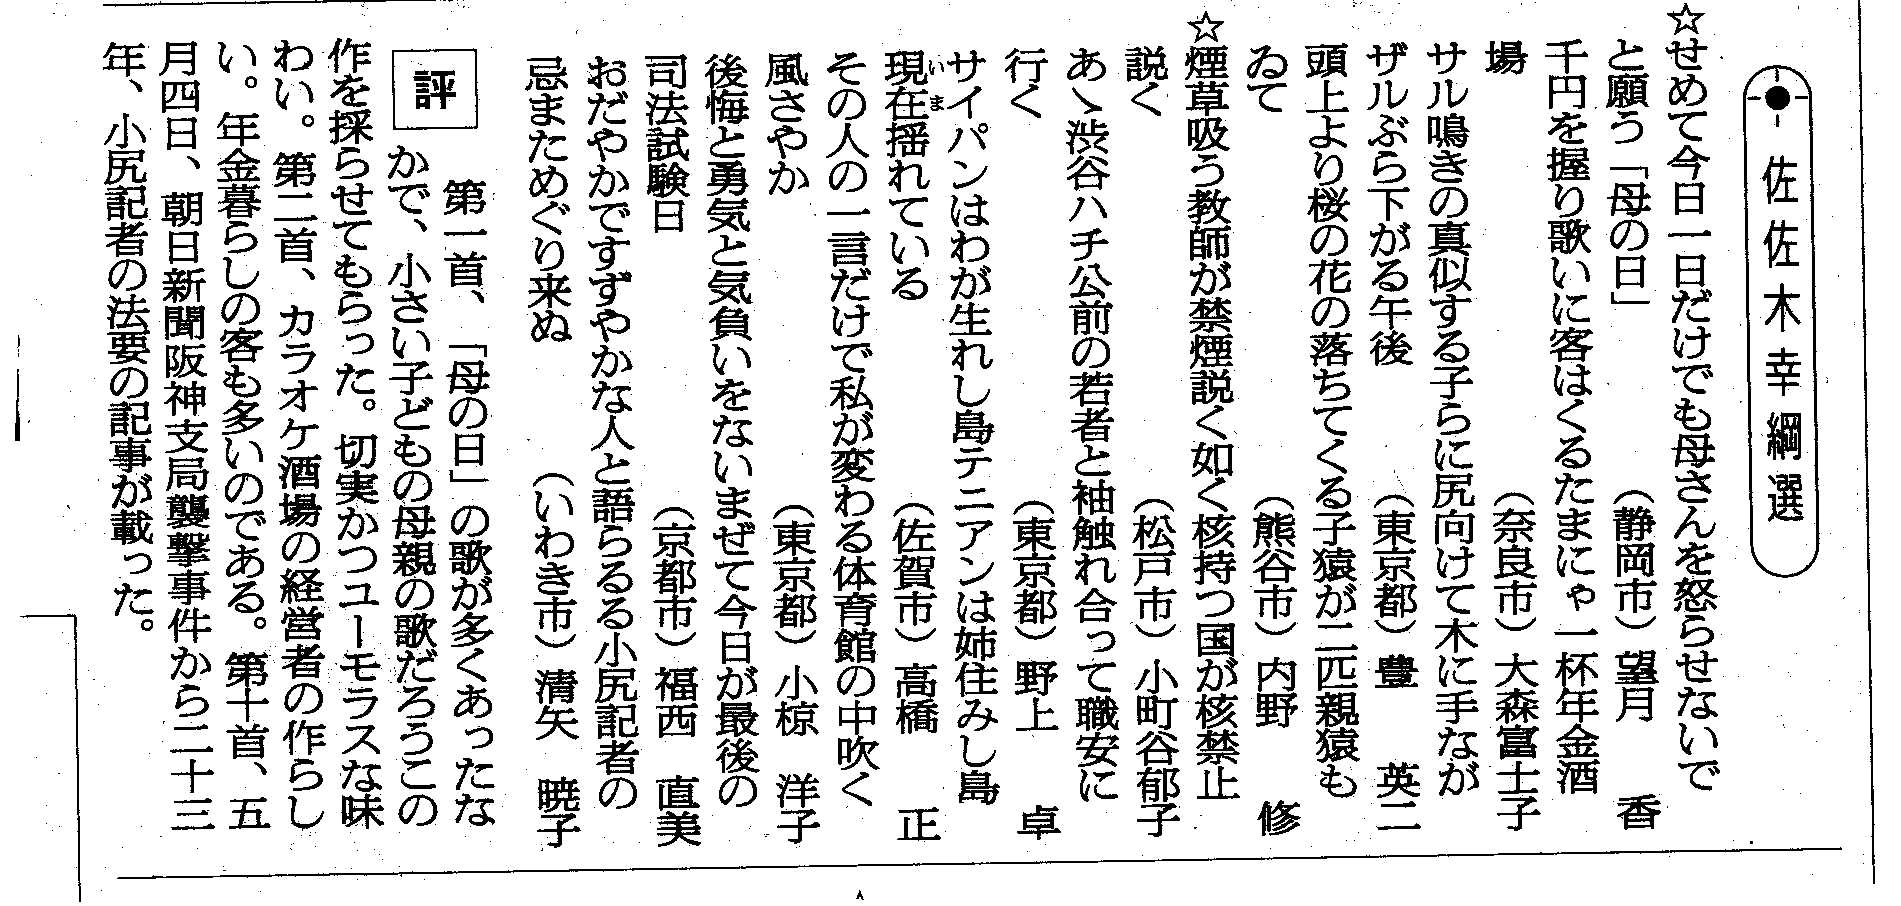 佐佐木幸綱選
☆せめて今日一日だけでも母さんを怒らせないで
と願う「母の日」　（静岡市）望月　香
千円を握り歌いに客はくるたまにゃ一杯年金酒
場　（奈良市）大森富士子
サル鳴きの真似する子らに尻向けて木に手なが
ザルぶら下がる午後　（東京都）豊　英二
頭上より桜の花の落ちてくる子猿が二匹親猿も
ゐて　（熊谷市）内野　修
☆煙草吸う教師が禁煙説く如く核持つ国が核禁止
説く　（松戸市）小町谷郁子
あゝ渋谷ハチ公前の若者と袖触れ合って職安に
行く　（東京都）野上　卓
サイパンはわが生れし島テニアンは姉住みし島
現在揺れている　（佐賀市）高橋　正
いま
その人の一言だけで私が変わる体育館の中吹く
風さやか　（東京都）小椋　洋子
後悔と勇気と気負いをないまぜて今日が最後の
司法試験日　（京都市）福西　直美
おだやかですずやかな人と語らるる小尻記者の
忌まためぐり来ぬ　（いわき市）清矢　暁子
評　第一首、「母の日」の歌が多くあったな
かで、小さい子どもの母親の歌だろうこの
作を採らせてもらった。切実かつユーモラスな味
わい。第二首、カラオケ酒場の経営者の作らし
い。年金暮らしの客も多いのである。第十首、五
月四日、朝日新聞阪神支局襲撃事件から二十三
年、小尻記者の法要の記事が載った。